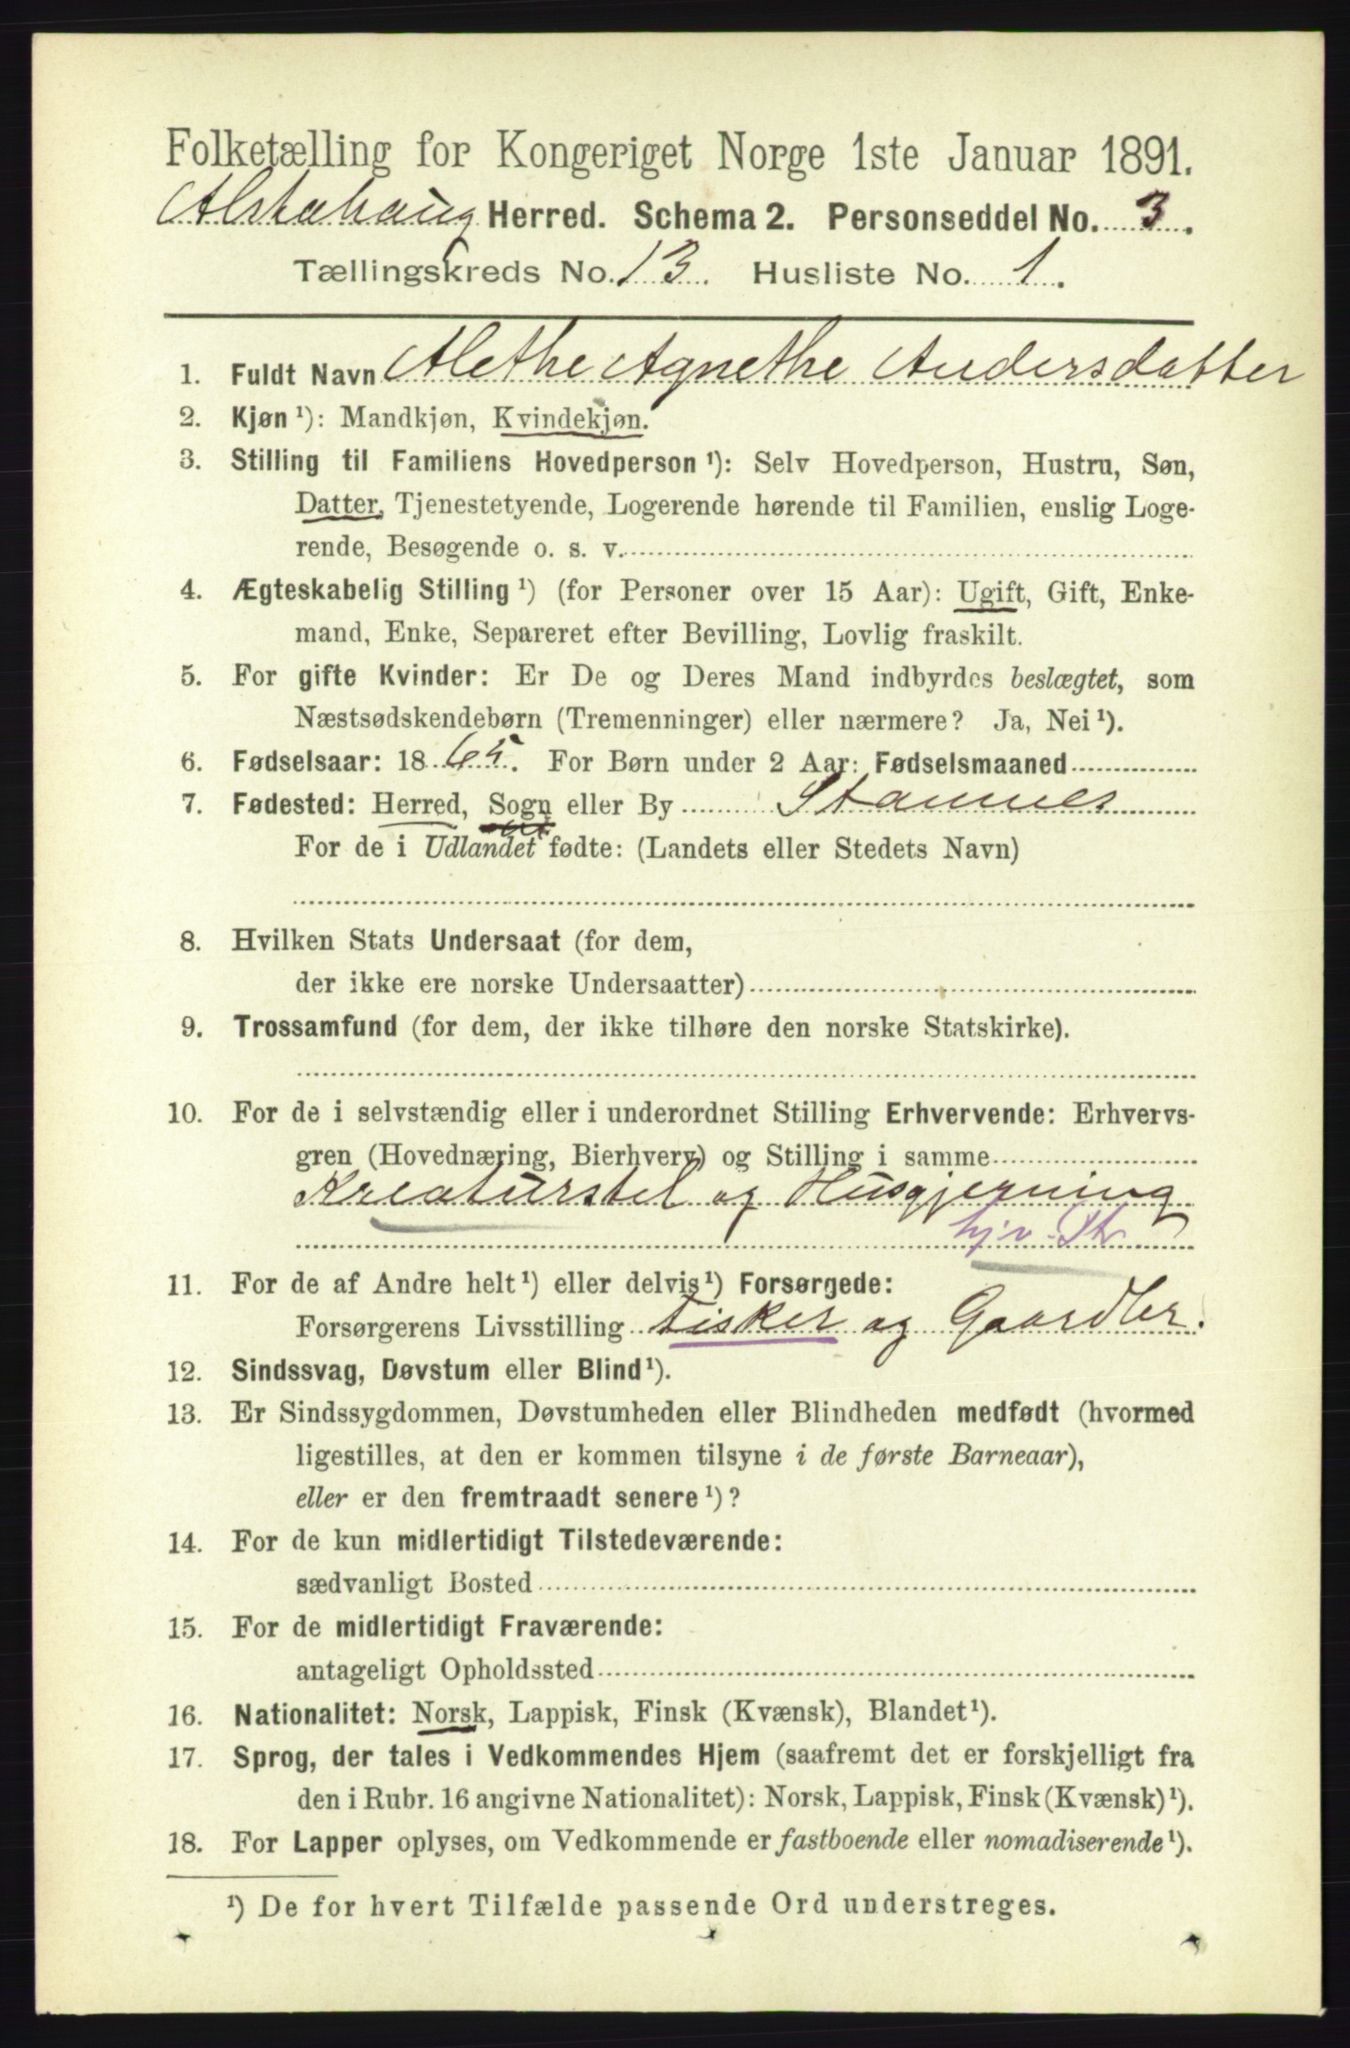 Folketælling for Kongeriget Norge 1ste Januar 1891.
Alstahaug Herred. Schema 2. Personseddel No. 3.
Tællingskreds No. 13. Husliste No. 1.
1. Fuldt Navn Alethe Agnethe Andersdatter
2. Kjøn ¹): Mandkjøn, Kvindekjøn.
3. Stilling til Familiens Hovedperson ¹): Selv Hovedperson, Hustru, Søn,
Datter, Tjenestetyende, Logerende hørende til Familien, enslig Loge-
rende, Besøgende o. s. v.
4. Ægteskabelig Stilling ¹) (for Personer over 15 Aar): Ugift, Gift, Enke-
mand, Enke, Separeret efter Bevilling, Lovlig fraskilt.
5. For gifte Kvinder: Er De og Deres Mand indbyrdes beslægtet, som
Næstsødskendebørn (Tremenninger) eller nærmere? Ja, Nei ¹).
6. Fødselsaar: 1865. For Børn under 2 Aar: Fødselsmaaned
7. Fødested: Herred, Sogn eller By Stamnes
For de i Udlandet fødte: (Landets eller Stedets Navn)
8. Hvilken Stats Undersaat (for dem,
der ikke ere norske Undersaatter)
9. Trossamfund (for dem, der ikke tilhøre den norske Statskirke).
10. For de i selvstændig eller i underordnet Stilling Erhvervende: Erhvervs-
gren (Hovednæring, Bierhverv) og Stilling i samme
Kreaturstel og Husgjerning
hjv. Dtr
11. For de af Andre helt ¹) eller delvis ¹) Forsørgede:
Forsørgerens Livsstilling Fisker og Gaardbr.
12. Sindssvag, Døvstum eller Blind ¹).
13. Er Sindssygdommen, Døvstumheden eller Blindheden medfødt (hvormed
ligestilles, at den er kommen tilsyne i de første Barneaar),
eller er den fremtraadt senere ¹)?
14. For de kun midlertidigt Tilstedeværende:
sædvanligt Bosted
15. For de midlertidigt Fraværende:
antageligt Opholdssted
16. Nationalitet: Norsk, Lappisk, Finsk (Kvænsk), Blandet ¹).
17. Sprog, der tales i Vedkommendes Hjem (saafremt det er forskjelligt fra
den i Rubr. 16 angivne Nationalitet): Norsk, Lappisk, Finsk (Kvænsk) ¹).
18. For Lapper oplyses, om Vedkommende er fastboende eller nomadiserende ¹).
¹) De for hvert Tilfælde passende Ord understreges.